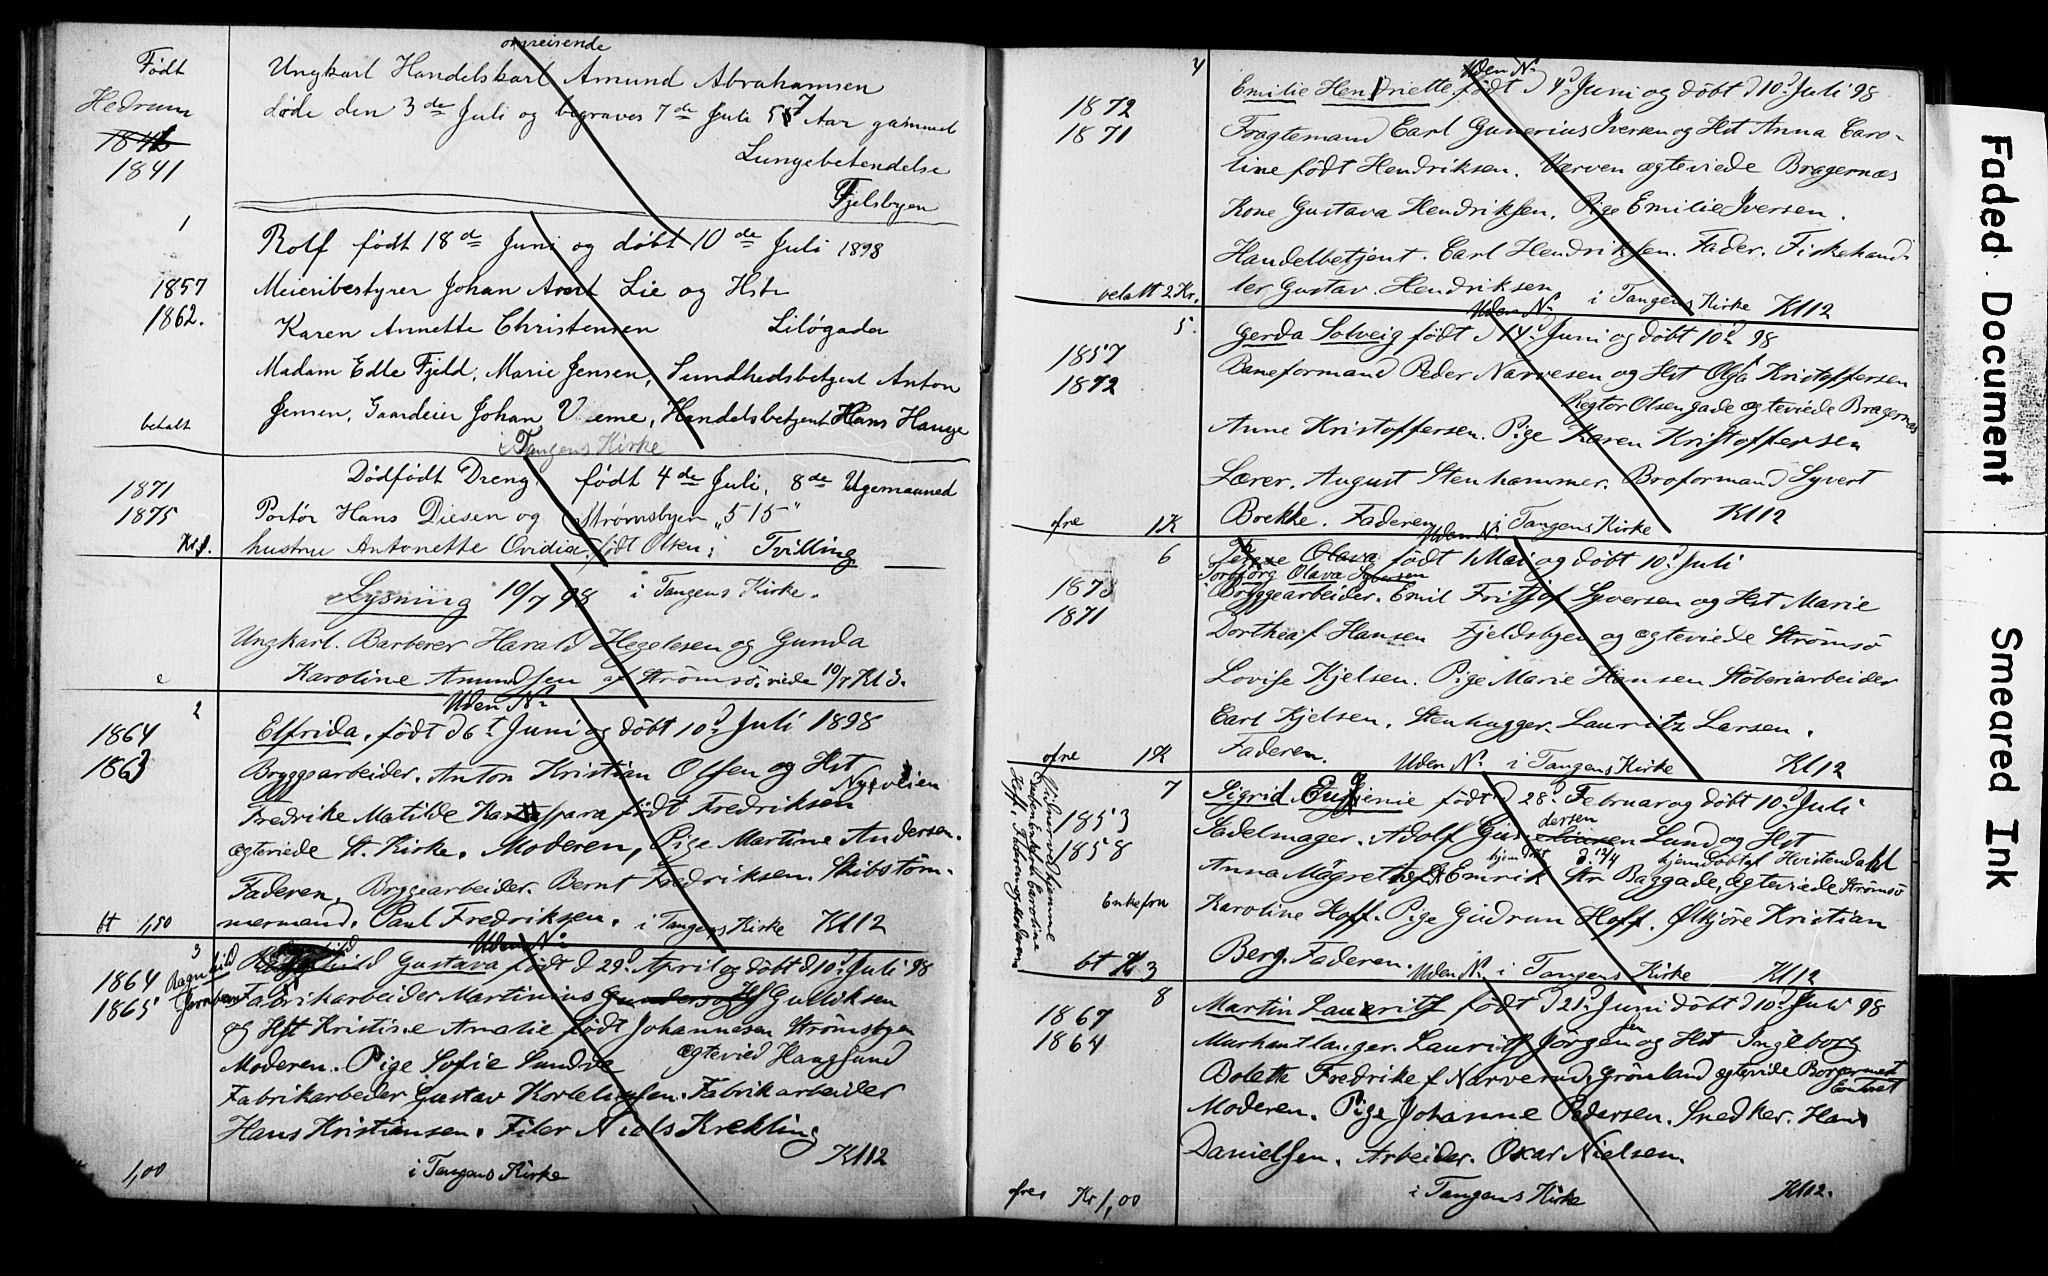 omreisende
Født Ungkarl Handelskarl Amund Abrahamsen
Hedrum døde den 3de Juli og begraves 7de Juli 57 Aar gammel
1841 Lungebetendelse
Fjelsbyen
1 Rolf født 18de Juni og døbt 10de Juli 1898
1857 Meieribestyrer Johan Lie og Hstr
1862. Karen Annette Christensen Liløgaden
Madam Edle Fjeld, Marie Jensen, Sundhedsbetjent Anton
betalt Jensen, Gaardeier Johan Handelsbetjent Hans Hauge
i Tangens Kirke
1871 Dødfødt Dreng, født 4de Juli, 8de Ugemaaned
1875 Portør Hans Diesen og Strømsbyen "515"
Kr 1. hustru Antonette Ovidia, født Olsen; Tvilling
Lysning 10/7 98 i Tangens Kirke.
Ungkarl. Barberer Harald Hegelesen og Gunda
Karoline Amundsen af Strømsø, viede 10/7 Kl 3.
2 Uden No
1864 Elfrida, født d 6t Juni og døbt 10d Juli 1898
1863 Bryggearbeider. Anton Kristian Olsen og Hst
Nyveien
Fredrike Matilde Kaspara født Fredriksen
ægteviede St. Kirke. Moderen, Pige Martine Andersen.
Faderen, Bryggearbeider. Bernt Fredriksen. Skibstøm-
bt 1,50 mermand. Paul Fredriksen. i Tangens Kirke Kl 12
3 Uden No
1864 Ragnhild Gustava født d 29d April og døbt d 10d Juli 98
1865 Fabrikarbeider Martinius Gulliksen
og Hst Kristine Amalie født Johannesen Strømsbyen
Moderen. Pige Sofie Sundve ægtevied Haugsund
Fabrikarbeider Gustav Fabrikarbeider
Hans Kristiansen. Filer Niels Krekling
Kl 12
1,00 i Tangens Kirke
4 Uden No
1872 Emilie Henriette, født d 4d Juni og døbt d 10d Juli 98
1871 Fragtemand Carl Gunerius Iversen og Hst Anna Caro-
line født Hendriksen. Værven ægteviede Bragernæs
Kone Gustava Hendriksen, Pige Emilie Iversen.
Handelbetjent. Carl Hendriksen. Fader. Fiskehand-
betalt 2 Kr. ler Gustav. Hendriksen i Tangens Kirke Kl 12
5. Uden No
Gerda Solveig født d 14d Juni og døbt 10d 98
1857 Baneformand Peder Narvesen og Hst Olga Kristoffersen
1872 Regtor Olsen gade ægteviede Bragernæs
Anne Kristoffersen. Pige Karen Kristoffersen
Lærer. August Stenhammer. Broformand Syvert
ofre 1 K Brekke. Faderen i Tangens Kirke Kl 12
Uden No
6 Olava født 1 Mai og døbt 10d Juli
Torbjørg Olava
1873 Bryggearbeider. Emil Fritjof Syversen og Hst Marie
1871 Dorthea f Hansen Fjeldsbyen og ægteviede Strømsø
Lovise Kjelsen. Pige Marie Hansen Støberiarbeider
Carl Kjelsen. Stenhugger. Lauritz Larsen.
ofre 1 K Faderen. Uden No i Tangens Kirke Kl 12
7 Sigrid Eugenie født d 28d Februar og døbt 10d Juli
dersen
1853 Sadelmager. Adolf Lund og Hst
1858 hjemdøbt d. 12/4 hjemdøbt af Hvistendahl
Anna Margrethe Emrik Str Baggade, ægteviede Strømsø
Enkefru Karoline Hoff. Pige Gudrun Hoff. Kristian
bt Kr 3 Berg. Faderen. Uden No i Tangens Kirke Kl 12
8 Martin Lauritz født d 21d Juni døbt d 10d Juli 98
1867 Lauritz Jørgensen og Hst Ingeborg
1864 Bolette Fredrike f Narverud, Grønland ægteviede Borgermest
Moderen. Pige Johanne Pedersen. Snedker. Hans
Danielsen. Arbeider. Oskar Nielsen.
ofres Kr 1,00 i Tangens Kirke Kl 12.
Faded Document
Smeared Ink